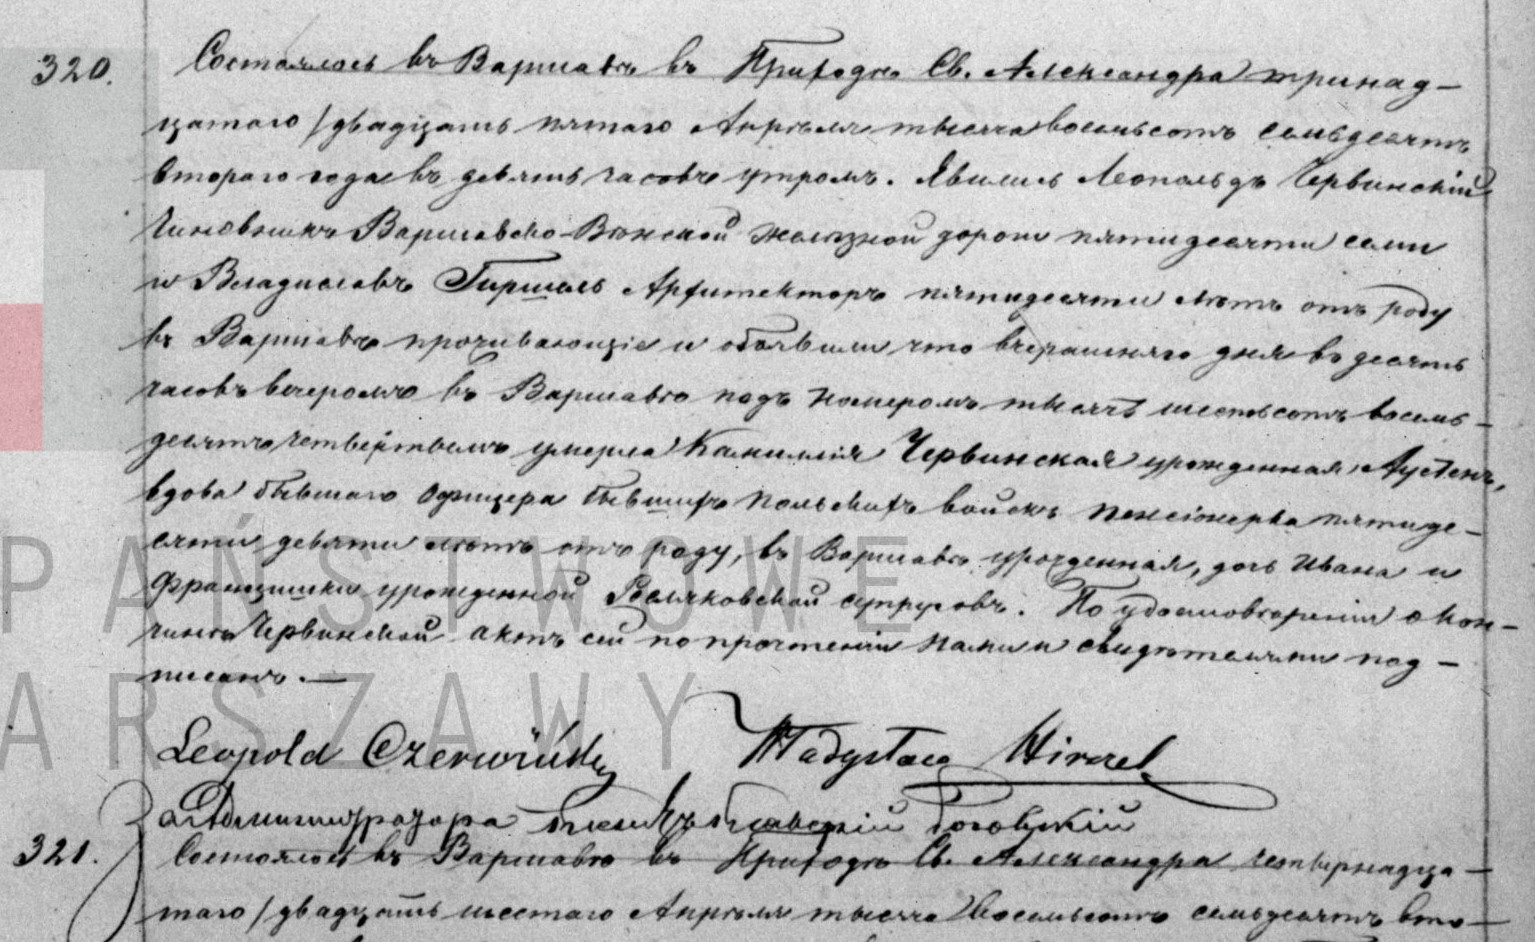 320. Состоялось въ Варшавѣ въ Приходѣ Св. Александра тринад-
цатаго / двадцать пятаго Апрѣля тысяча восемьсотъ семьдесятъ
втораго года въ девять часовъ утромъ. Явились Леопольдъ Червинскій
Чиновникъ Варшавско-Вѣнской желѣзной дороги пятидесяти семи
и Владиславъ Гиршель Архитекторъ пятидесяти лѣтъ отъ роду
въ Варшавѣ проживающіе и объявили что вчерашняго дня въ десять
часовъ вечеромъ въ Варшавѣ подъ номеромъ тысяча шестьсотъ восемь-
десятъ четвертымъ умерла Камиллія Червинская урожденная
вдова бывшаго Офицера бывшихъ польскихъ войскъ пенсіонерка пятиде-
сяти девяти лѣтъ отъ роду, въ Варшавѣ урожденная, дочь Ивана и
Францишки урожденной супруговъ. По удостовѣреніи о кон-
чинѣ Червинской актъ сей по прочтеніи нами и свидѣтелями под-
писанъ. —
PAŃSTWOWE
ARSZAWY
Leopold Czerwiński Władysław Hirszel
за Администратора
321. Состоялось въ Варшавѣ въ Приходѣ Св. Александра четырнадца-
таго / двадцать шестаго Апрѣля тысяча восемьсотъ семьдесятъ вто-